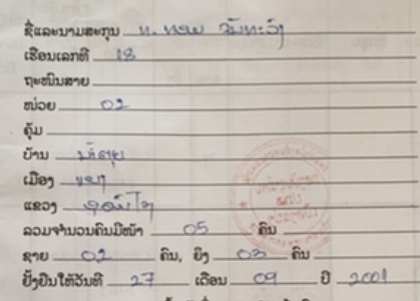 ຊື່ແລະນາມສະກຸນ ທ. ທອນ ຈັນທະວົງ
ເຮືອນເລກທີ 18
ຖະໜົນສາຍ
ໜ່ວຍ 02
ຄຸ້ມ
ບ້ານ
ເມືອງ
ແຂວງ
ລວມຈຳນວນຄົນມີໜ້າ 05 ຄົນ
ຊາຍ 02 ຄົນ, ຍິງ 03 ຄົນ
ຢັ້ງຢືນໃຫ້ວັນທີ 27 ເດືອນ 09 ປີ 2001